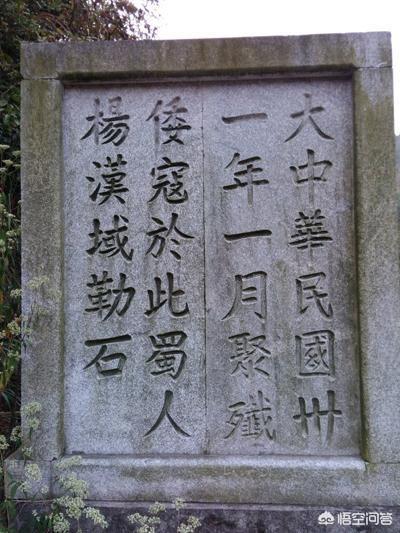 大中華民國卅
一年一月聚殲
倭寇於此蜀人
楊漢域勒石
悟空问答